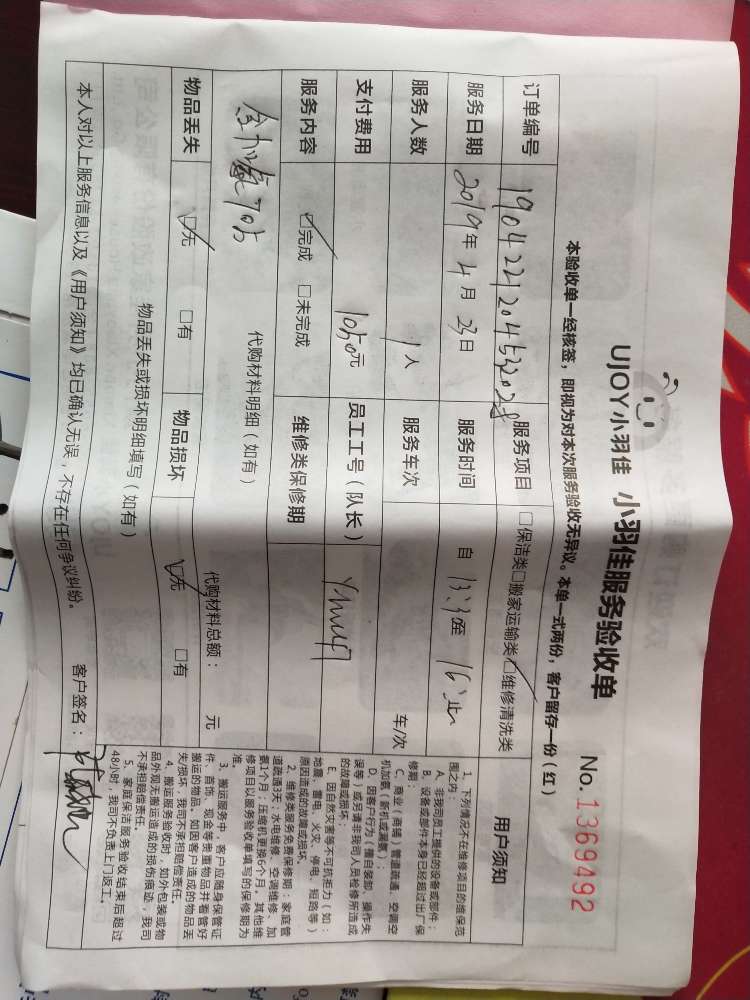 UJOY小羽佳 小羽佳服务验收单
No.1369492
本验收单一经核签，即视为对本次服务验收无异议。本单一式两份，客户留存一份（红）
订单编号 服务项目 □保洁类□搬家运输类☑维修清洗类
服务日期 2019年4月23日 服务时间 自 至
服务人数 1人 服务车次 车/次
支付费用 1050元 员工工号（队长）
服务内容 ☑完成 □未完成 维修类保修期
代购材料明细（如有）
代购材料总额： 元
物品丢失 ☑无 □有 物品损坏 ☑无 □有
物品丢失或损坏明细填写（如有）
本人对以上服务信息以及《用户须知》均已确认无误，不存在任何争议纠纷。 客户签名：
用户须知
1、下列情况不在维修项目的维保范
围之内：
A、非我司员工提供的设备或部件；
B、设备或部件本身已经超过出厂保
修期；
C、商业（商铺）管道疏通、空调空
机加氨（新机或漏氨）；
D、因客户行为（擅自装卸、操作失
误等）或另请非我司人员检修所造成
的故障或损坏；
E、因自然灾害等不可抗拒力（如：
地震、雷电、火灾、停电、短路等）
原因造成的故障或损坏。
2、维修类服务免费保修期：家庭管
道疏通3天；水电维修、空调维修、加
氨1个月；压缩机更换6个月。其他维
修项目以服务验收单填写的保修期为
准。
3、搬运服务中，客户应随身保管证
件、首饰、现金等贵重物品并看管好
搬运的物品。如因客户造成的物品丢
失/损坏，我司不承担赔偿责任。
4、搬运服务验收时，如外包装或物
品外观无搬运造成的损伤痕迹，我司
不承担赔偿责任。
5、家庭保洁服务验收结束后超过
48小时，我司不负责上门返工。